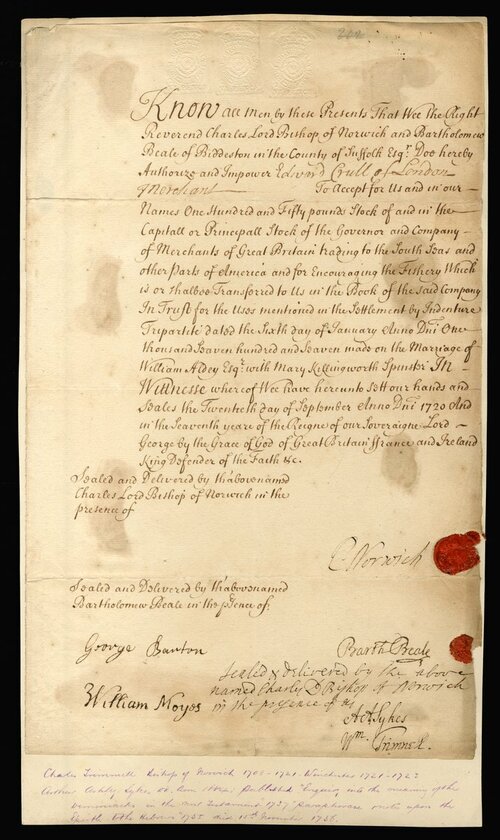 202
Know all men by these Presents That Wee the Right
Reverend Charles Lord Bishop of Norwich and Bartholomew
Beale of Biddeston in the County of Suffolk Esqr. Doo hereby
Authorize and Impower Edward Crull of London
Merchant To Accept for Us and in our
Names One Hundred and Fifty pounds Stock of and in the
Capitall or Principall Stock of the Governor and Company
of Merchants of Great Britain trading to the South Seas and
other Parts of America and for Encouraging the Fishery Which
is or shalbee Transferred to Us in the Book of the said Company
In Trust for the Uses mentioned in the Settlement by Indenture
Trepartite dated the Sixth day of January Anno Dni One
thousand Seaven hundred and Seaven made on the Marriage of
William Aldey Esqr. with Mary Killingworth Spinstr. In
Wittnesse whereof Wee have hereunto sett our hands and
Seales the Twentieth day of September Anno Dni 1720 And
in the Seaventh yeare of the Reigne of our Soveraigne Lord
George by the Grace of God of Great Britain ffrance and Ireland
King Defender of the Faith &c.
Sealed and Delivered by thabovenamed
Charles Lord Bishop of Norwich in the
presence of
C Norwich
Sealed and Delivered by thabovenamed
Bartholomew Beale in the psence of
George Barton
Barth Beale
William Moyes
sealed & delivered by the above
named Charles Ld Bishop of Norwich
in the presence of us
A A Sykes
Wm. Trimnell.
Charles Trimnell Bishop of Norwich 1708-1721. Winchester 1721-1723
Arthur Ashley Sykes published Enquiry into the meaning of the
Demoniacks in the New Testament 1737 Paraphrase notes upon the
Epistle to the Hebrews 1755 died November 1756.